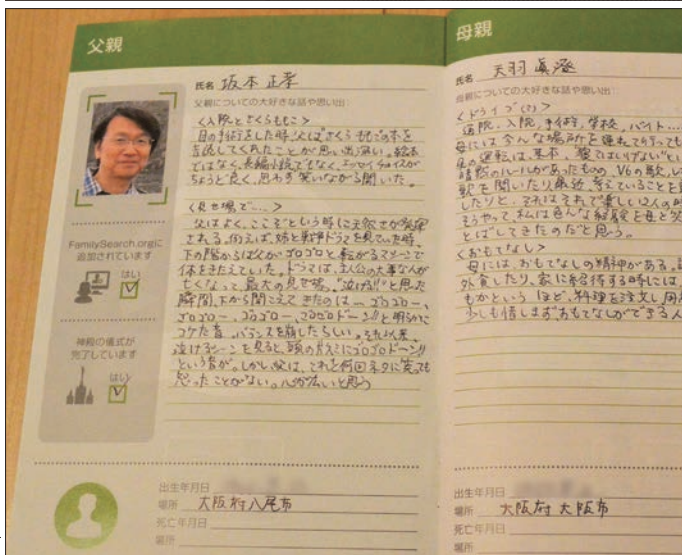 父親
氏名 坂本 正孝
父親についての大好きな話や思い出:
<入院とさくらももこ>
目の手術をした時、父はさくらももこの本を
音読してくれたことが思い出深い。絵本
ではなく、長編小説でもなく、エッセイチョイスが
ちょうど良く、思わず笑いながら聞いた。
<見せ場で…>
父はよく、ここぞという時に天然さが発揮
される。例えば、姉と戦争ドラマを見ていた時、
下の階からは父がゴロゴロと転がるマシーンで
体をきたえていた。ドラマは、主人公の大事な人が
亡くなって、最高の見せ場。"泣ける!!"と思った
瞬間、下から聞こえてきたのは 〜ゴロゴロー、
ゴロゴロー、ゴロゴロー、ゴロゴロドーン!!と明らかに
コケた音。バランスを崩したらしい。それ以来、
泣けるシーンを見ると、頭の片すみにゴロゴロドーン!!
という音が。しかし父は、これを何回ネタに笑っても
怒ったことがない。心が広いと思う
FamilySearch.orgに
追加されています
はい
神殿の儀式が
完了しています
はい
出生年月日
場所 大阪府八尾市
死亡年月日
場所
母親
氏名 天羽 眞澄
母親についての大好きな話や思い出:
<ドライブ(?)>
通院、入院、手術、学校、バイト…
母には色んな場所を連れて行っても
母の運転は、基本、"寝てはいけない"とい
暗黙のルールがあったものの、V6の歌、
歌を聞いたり最近考えていることを
したりと、それはそれで楽しい2人の時
そうやって、私は色んな経験を母と
とばしてきたのだと思う。
<おもてなし>
母には、おもてなしの精神がある。
外食したり、家に招待する時には、
もかという ほど、料理を注文し用
少しも惜しまずおもてなしができる人
出生年月日
場所 大阪府 大阪市
死亡年月日
場所